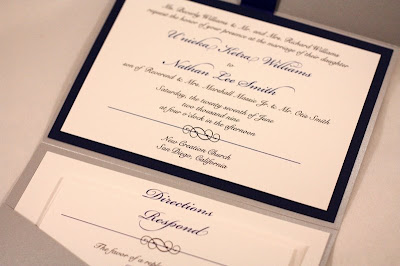 Ms. Beverly Williams & Mr. and Mrs. Richard Williams
request the honor of your presence at the marriage of their daughter
Unieka Ketra Williams
to
Nathan Lee Smith
son of Reverend & Mrs. Marshall Mason Jr. & Mr. Otis Smith
Saturday, the twenty seventh of June
two thousand nine
at four o'clock in the afternoon
New Creation Church
San Diego, California
Directions
Respond
The favor of a